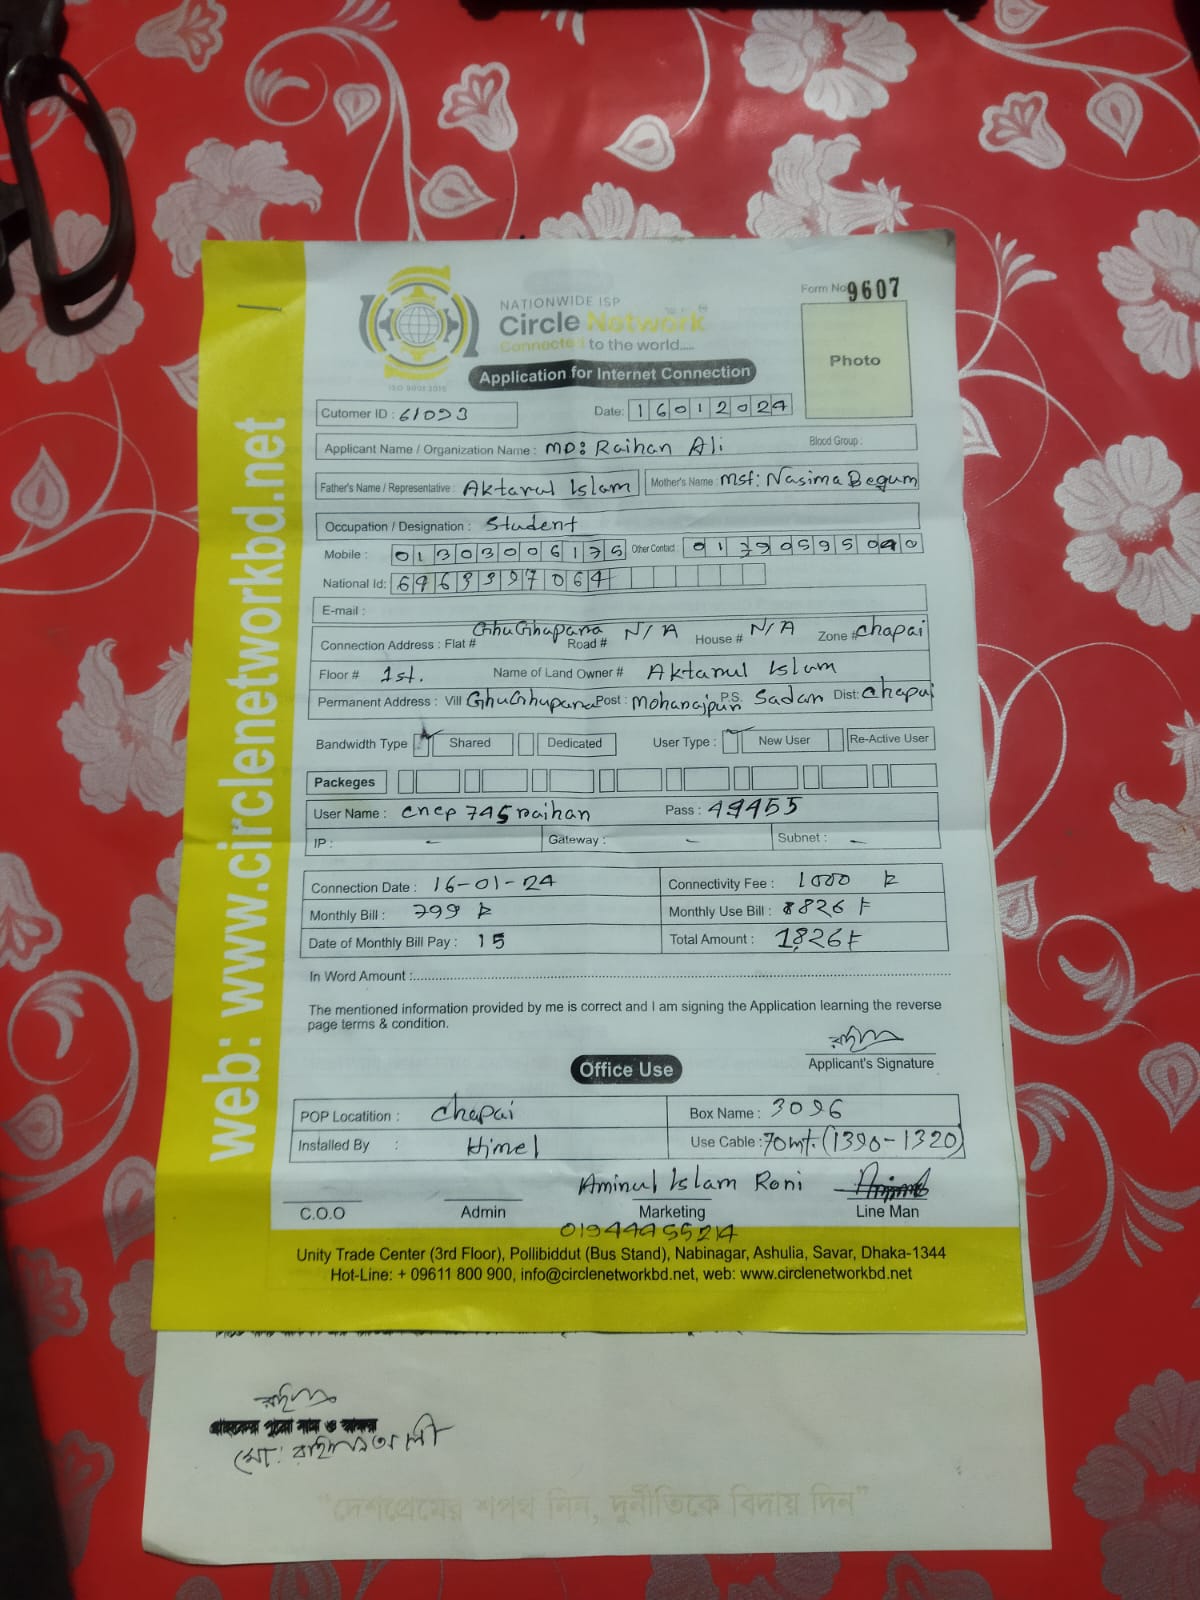 Form No 9607
NATIONWIDE ISP
Circle Network
Connected to the world.....
ISO 9001:2015
Photo
Application for Internet Connection
Cutomer ID : 61093
Date: 16012024
Applicant Name / Organization Name : MD: Raihan Ali Blood Group :
Father's Name / Representative : Aktarul Islam Mother's Name : Mst: Nasima Begum
Occupation / Designation : Student
Mobile : 01303006175 Other Contact :
National Id:
E-mail :
Connection Address : Flat # GhuGhupara Road # N/A House # N/A Zone # Chapai
Floor # 1st. Name of Land Owner # Aktarul Islam
Permanent Address : Vill GhuGhupara Post : Moharajpur P.S. Sadar Dist: Chapai
Bandwidth Type Shared Dedicated User Type : New User Re-Active User
Packeges
User Name : cncp745raihan Pass : 49455
IP : - Gateway : - Subnet : -
Connection Date : 16-01-24 Connectivity Fee : 1000
Monthly Bill : 799 Monthly Use Bill : 826
Date of Monthly Bill Pay : 15 Total Amount : 1826
In Word Amount :
The mentioned information provided by me is correct and I am signing the Application learning the reverse
page terms & condition.
Applicant's Signature
Office Use
POP Locatition : Chapai Box Name : 3096
Installed By : Himel Use Cable : 70mt. (1390-1320)
Aminul Islam Roni
C.O.O Admin Marketing Line Man
Unity Trade Center (3rd Floor), Pollibiddut (Bus Stand), Nabinagar, Ashulia, Savar, Dhaka-1344
Hot-Line: + 09611 800 900, info@circlenetworkbd.net, web: www.circlenetworkbd.net
web: www.circlenetworkbd.net
মো: রাইহান আলী
"দেশপ্রেমের শপথ নিন, দুর্নীতিকে বিদায় দিন"